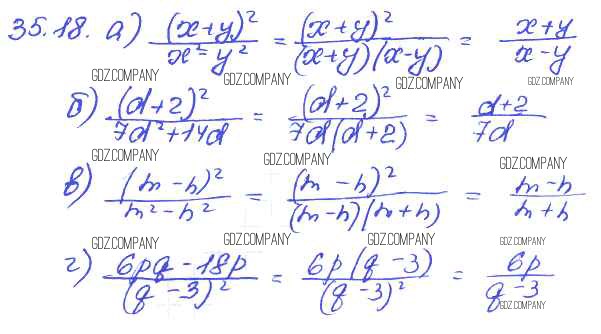 35.18. а) (x+y)² / x²-y² = (x+y)² / (x+y)(x-y) = x+y / x-y
GDZ.COMPANY GDZ.COMPANY GDZ.COMPANY GDZ.COMPANY
б) (d+2)² / 7d²+14d = (d+2)² / 7d(d+2) = d+2 / 7d
GDZ.COMPANY GDZ.COMPANY GDZ.COMPANY
в) (m-n)² / m²-n² = (m-n)² / (m-n)(m+n) = m-n / m+n
GDZ.COMPANY GDZ.COMPANY GDZ.COMPANY GDZ.COMPANY
г) 6pq-18p / (q-3)² = 6p(q-3) / (q-3)² = 6p / q-3
GDZ.COMPANY